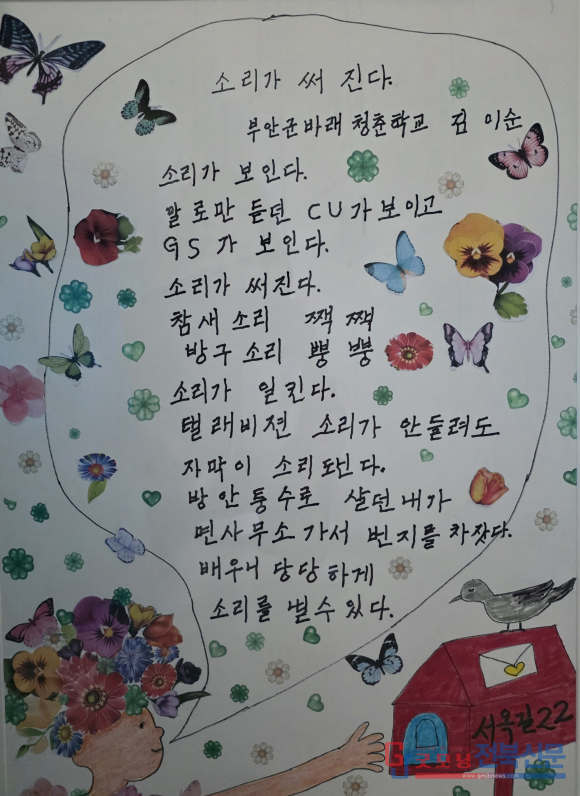 소리가 써 진다.
부안군바래 청춘학교 김 이순
소리가 보인다.
말로만 듣던 CU가보이고
GS가 보인다.
소리가 써진다.
참새소리 짹짹
방구소리 뿡 뿡
소리가 일킨다.
텔래비젼 소리가 안들려도
자막이 소리되넌다.
방안퉁수로 살던내가
면사무소가서 번지를 차잣다.
배우니 당당하게
소리를 낼수있다.
서옥길22
굿모닝전북신문
www.gmjbnews.com